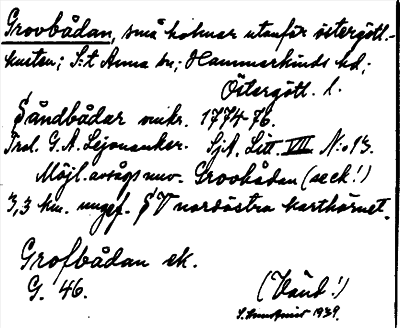 Grovbådan, små holmar utanför östergöt.-
kusten; S:t Anna sn; Hammarkinds hd;
Östergötl. l.
Såndbådar omkr. 1774-76.
Trol. G.A. Lejonanker. SjA, Litt. VIII N:o 13.
Möjl. avsågs nuv. Grovbådan (se ek!)
3,3 km. ungef. SV nordöstra karthörnet.
Grofbådan ek.
G. 46.
(Vänd!)
1939.